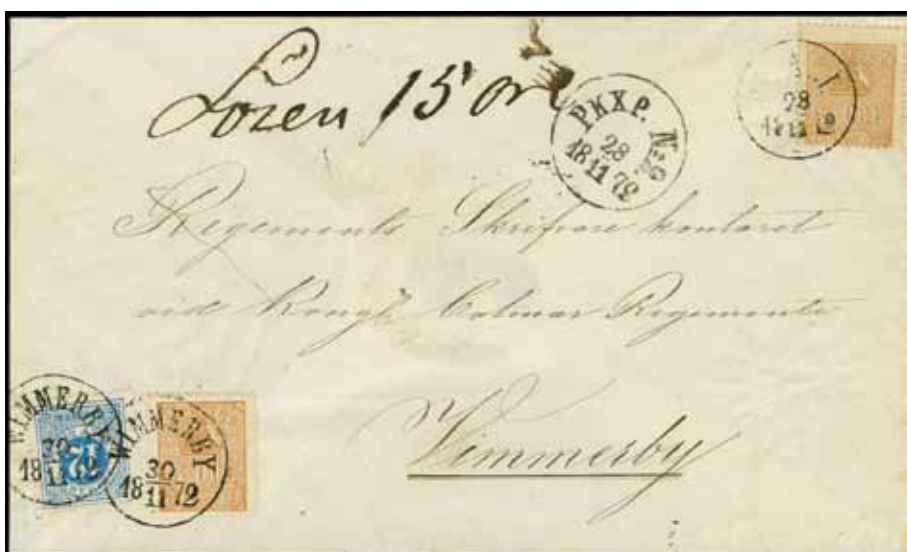 Lösen 15 öre
PKXP. No 2.
28
18 11 72
28
18 11 72
Regements Skrifvare kontoret
vid Kongl Calmar Regemente
Vimmerby
WIMMERBY
30
18 11 72
12
WIMMERBY
30
18 11 72